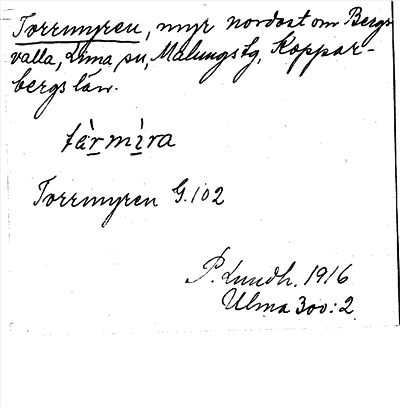 Torrmyren, myr nordost om Bergs-
valla, Lima sn, Malungs tg, Koppar-
bergs län.
tàrmìra
Torrmyren G.102
P. Lundh. 1916
Ulma 300:2